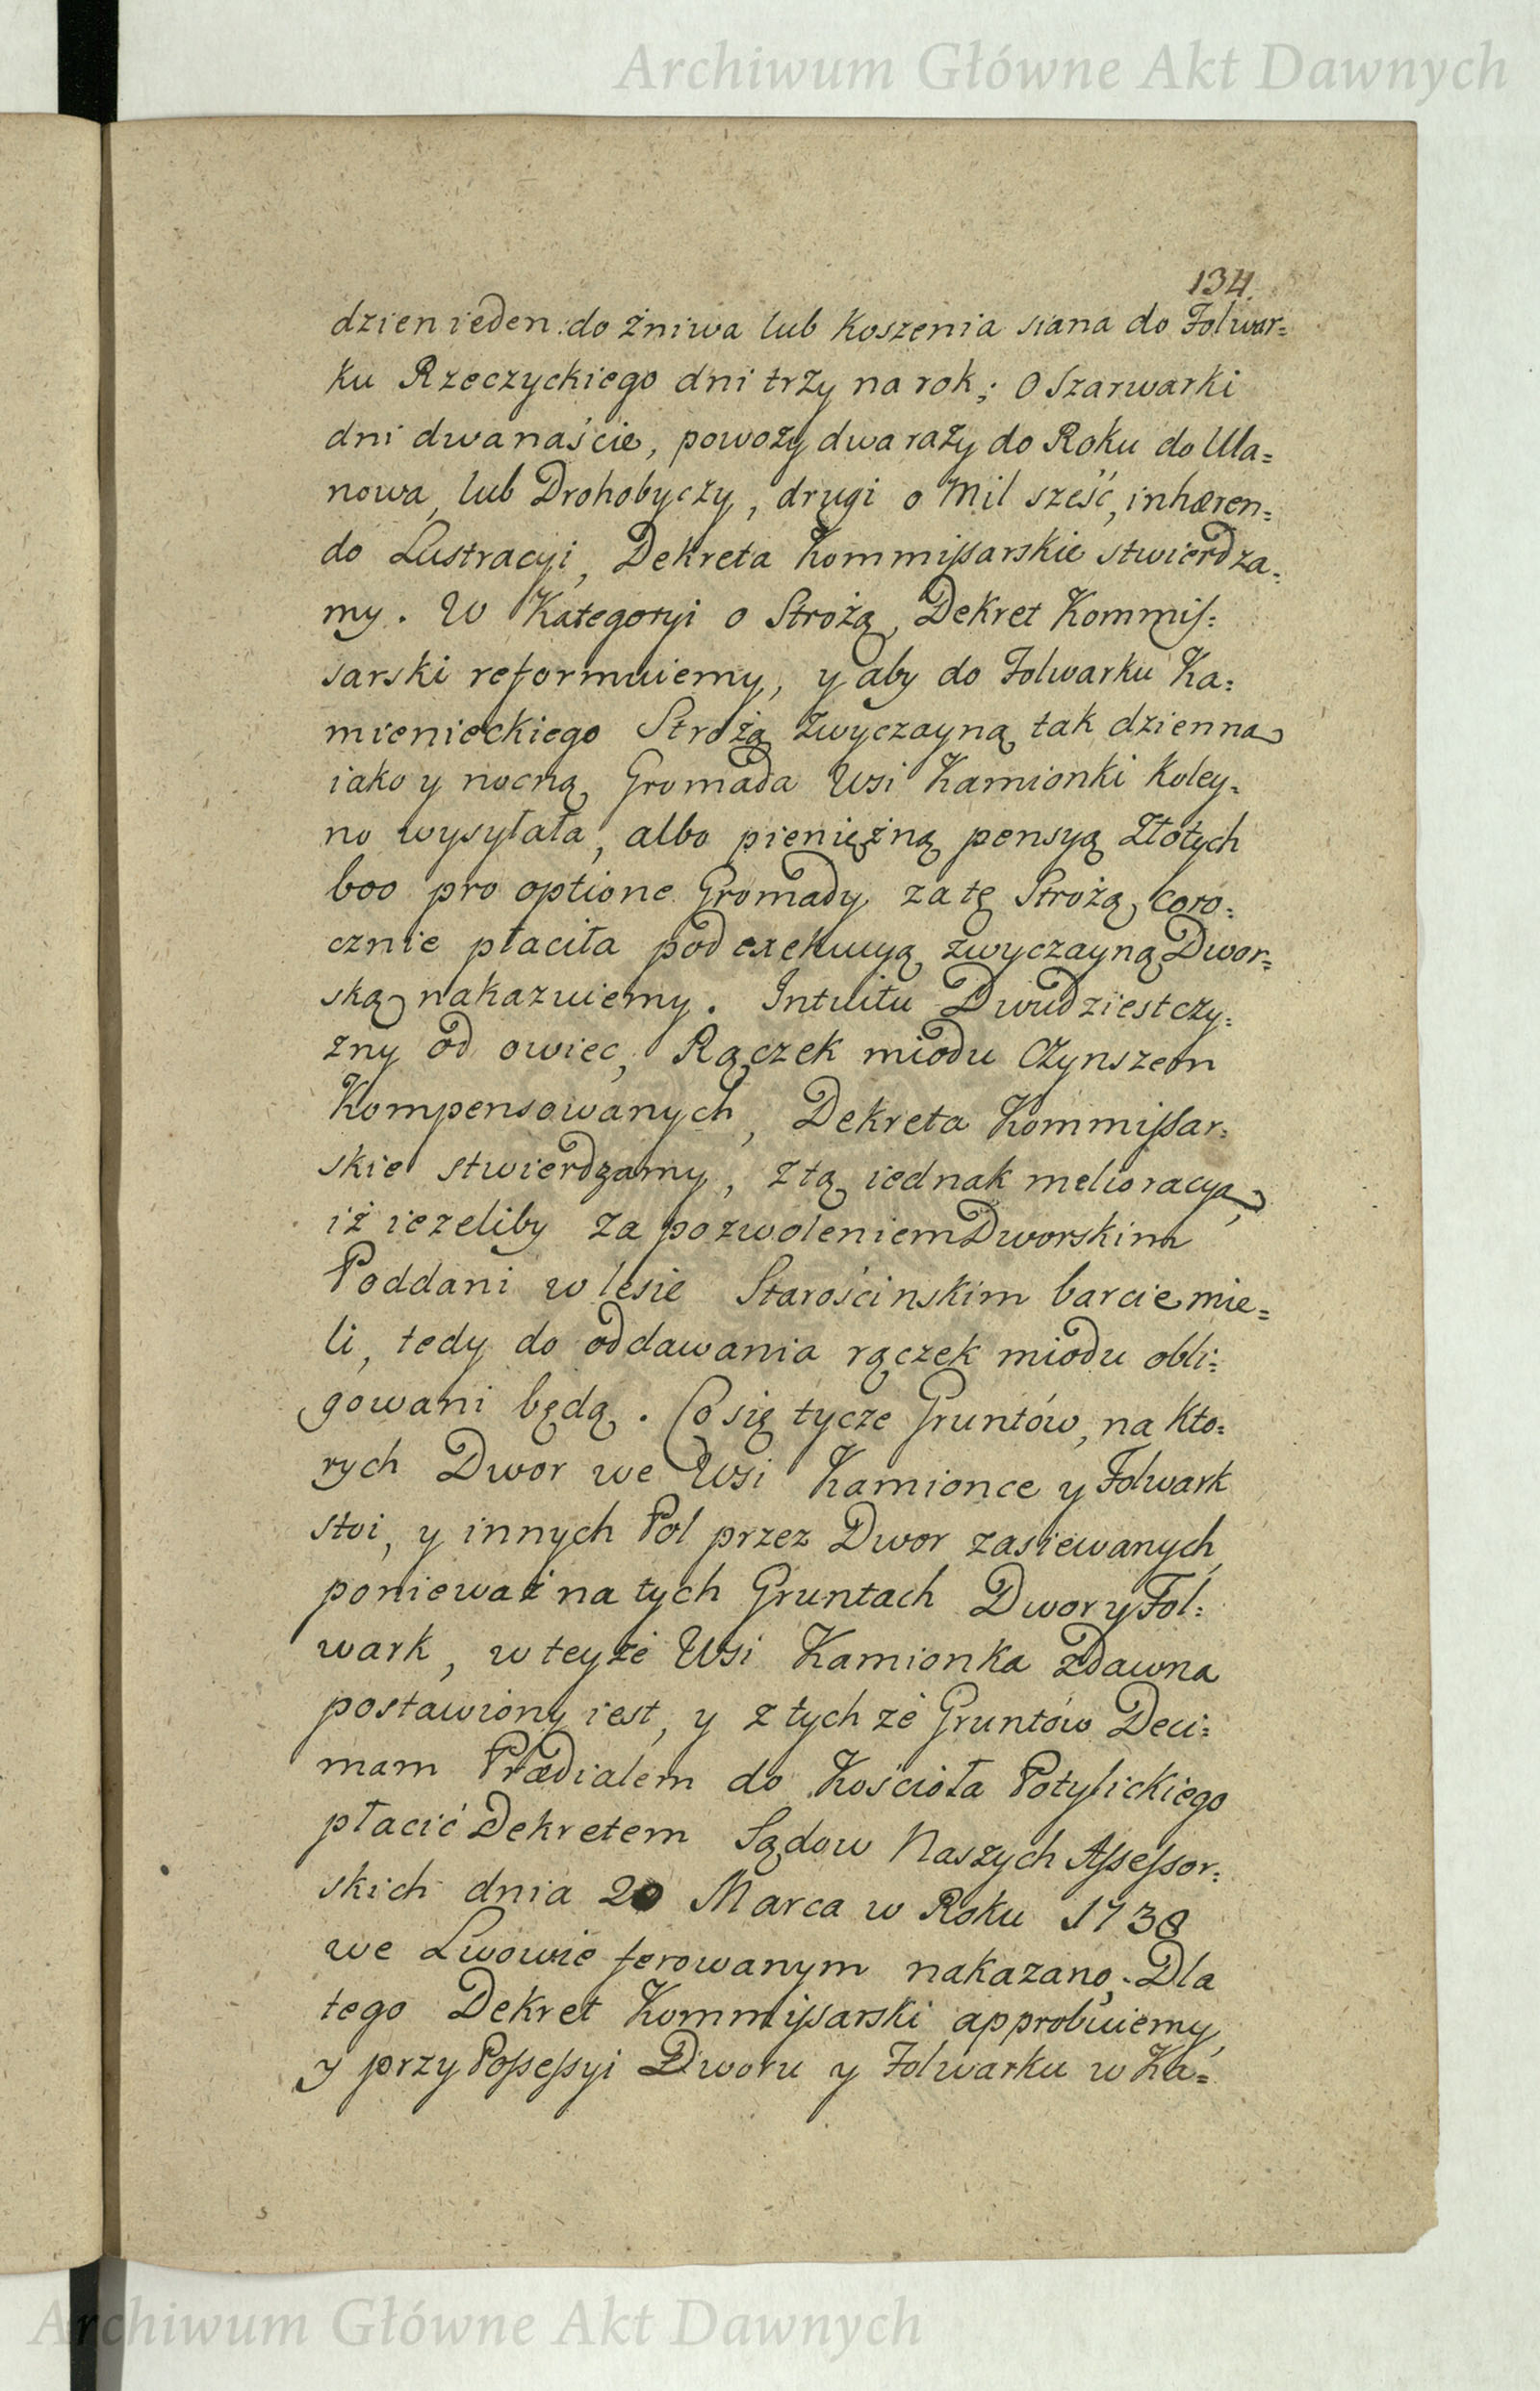 Archiwum Główne Akt Dawnych
134.
dzien ieden do żniwa lub Koszenia siana do Folwar=
ku Rzeczyckiego dni trzy na rok; O Szarwarki
dni dwanaście, powozy dwa razy do Roku do Ula=
nowa, lub Drohobyczy, drugi o Mil sześć, inhæren=
do Lustracyi, Dekreta Kommissarskie stwierdza=
my. W Kategoryi o Stróżą, Dekret Kommis=
sarski reformuiemy, y aby do Folwarku Ka=
mienieckiego Stróżą zwyczayną tak dzienną
iako y nocną Gromada Wsi Kamionki koley=
no wysyłała, albo pieniężną pensyą Złotych
600 pro optione Gromady za tę Stróżą coro=
cznie płaciła pod exekucyą zwyczayną Dwor=
ską nakazuiemy. Intuitu Dwudziestczy=
zny od owiec, Rączek miodu Czynszem
Kompensowanych, Dekreta Kommissar=
skie stwierdzamy, z tą iednak melioracyą,
iż ieżeliby za pozwoleniem Dworskim
Poddani w lesie Starościnskim barcie mie=
li, tedy do oddawania rączek miodu obli=
gowani będą. Co się tycze Gruntów, na kto=
rych Dwor we Wsi Kamionce y Folwark
stoi, y innych Pol przez Dwor zasiewanych,
ponieważ na tych Gruntach Dwor y Fol=
wark, w teyże Wsi Kamionka zdawna
postawiony iest, y z tych że Gruntów Deci=
mam Prædialem do Kościoła Potylickiego
płacić Dekretem Sądow Naszych Assessor=
skich dnia 20 Marca w Roku 1738
we Lwowie ferowanym nakazano. Dla
tego Dekret Kommissarski approbuiemy,
y przy Possessyi Dworu y Folwarku w Ka=
Archiwum Główne Akt Dawnych